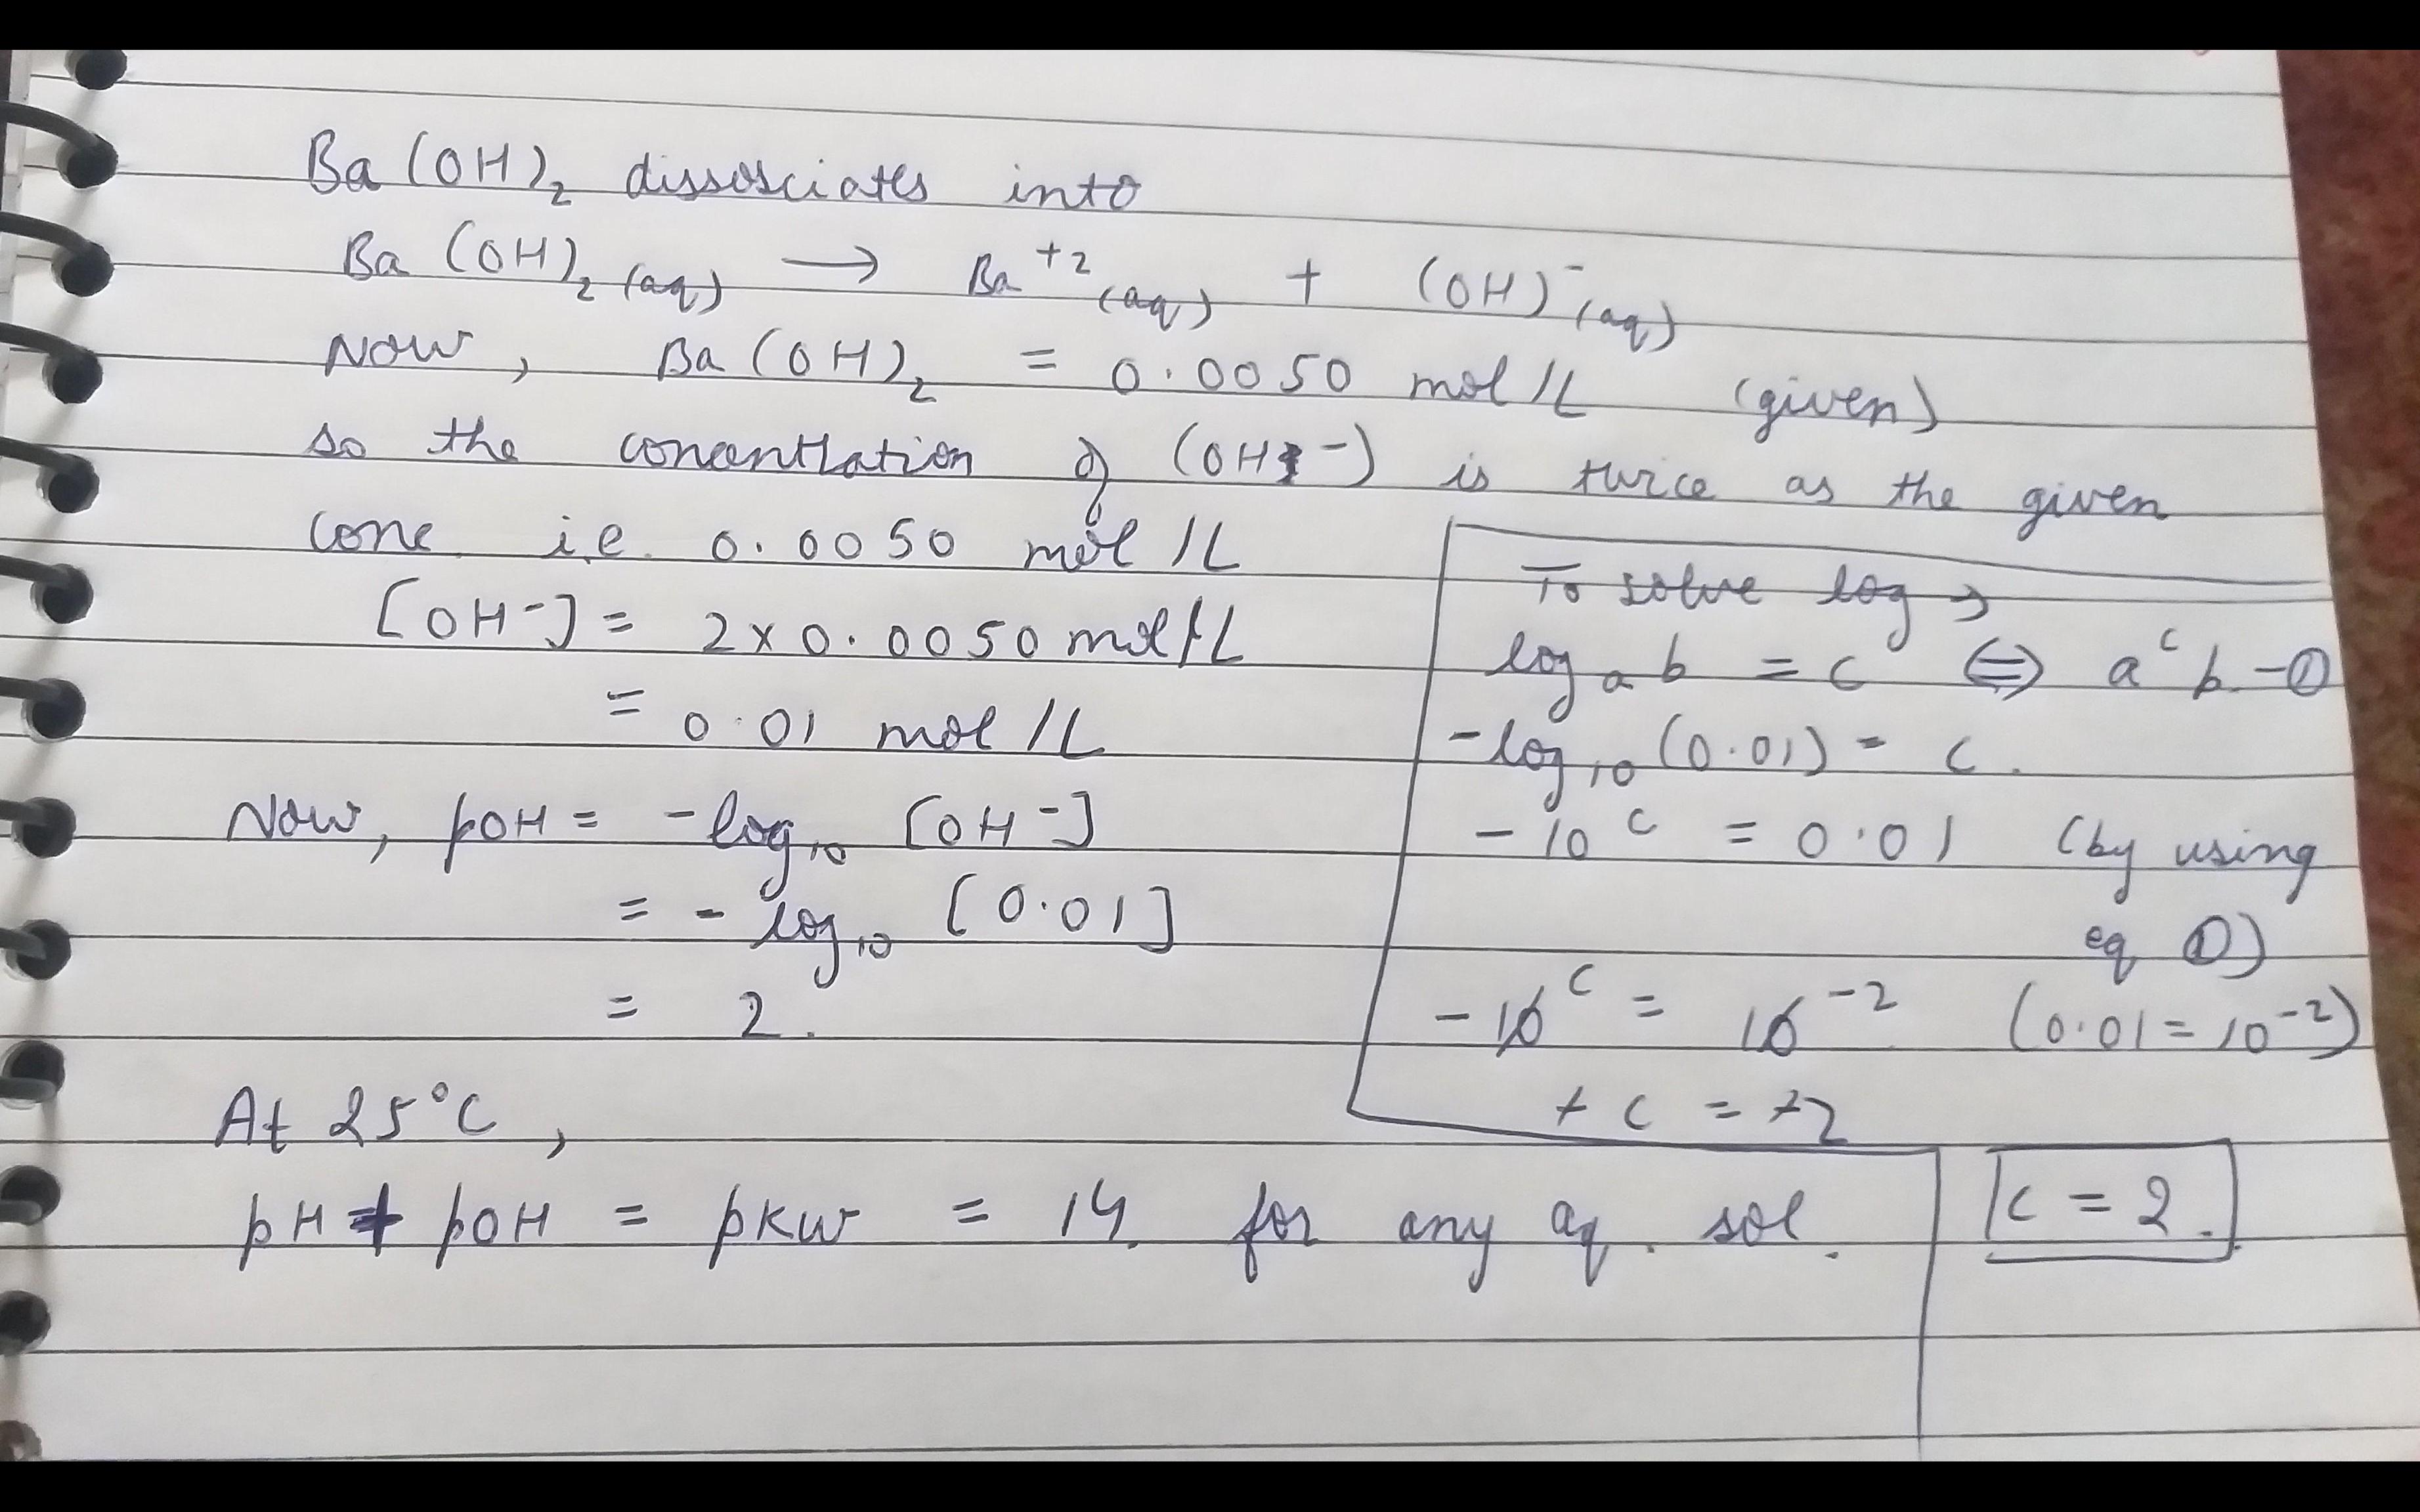 Ba(OH)₂ dissosciates into
Ba(OH)₂(aq) → Ba⁺²(aq) + (OH)⁻(aq)
Now, Ba(OH)₂ = 0.0050 mol/L (given)
so the concentration of (OH⁻) is twice as the given
conc i.e. 0.0050 mol/L
[OH⁻] = 2x0.0050 mol/L
= 0.01 mol/L
Now, pOH = -log₁₀ [OH⁻]
= -log₁₀ [0.01]
= 2.
At 25°C,
pH + pOH = pKw = 14. for any aq. sol.
To solve log →
logₐ b = c ⇔ aᶜ b -①
-log₁₀ (0.01) = c.
-10ᶜ = 0.01 (by using
eq ①)
-10ᶜ = 10⁻² (0.01 = 10⁻²)
+ c = +2
c = 2.